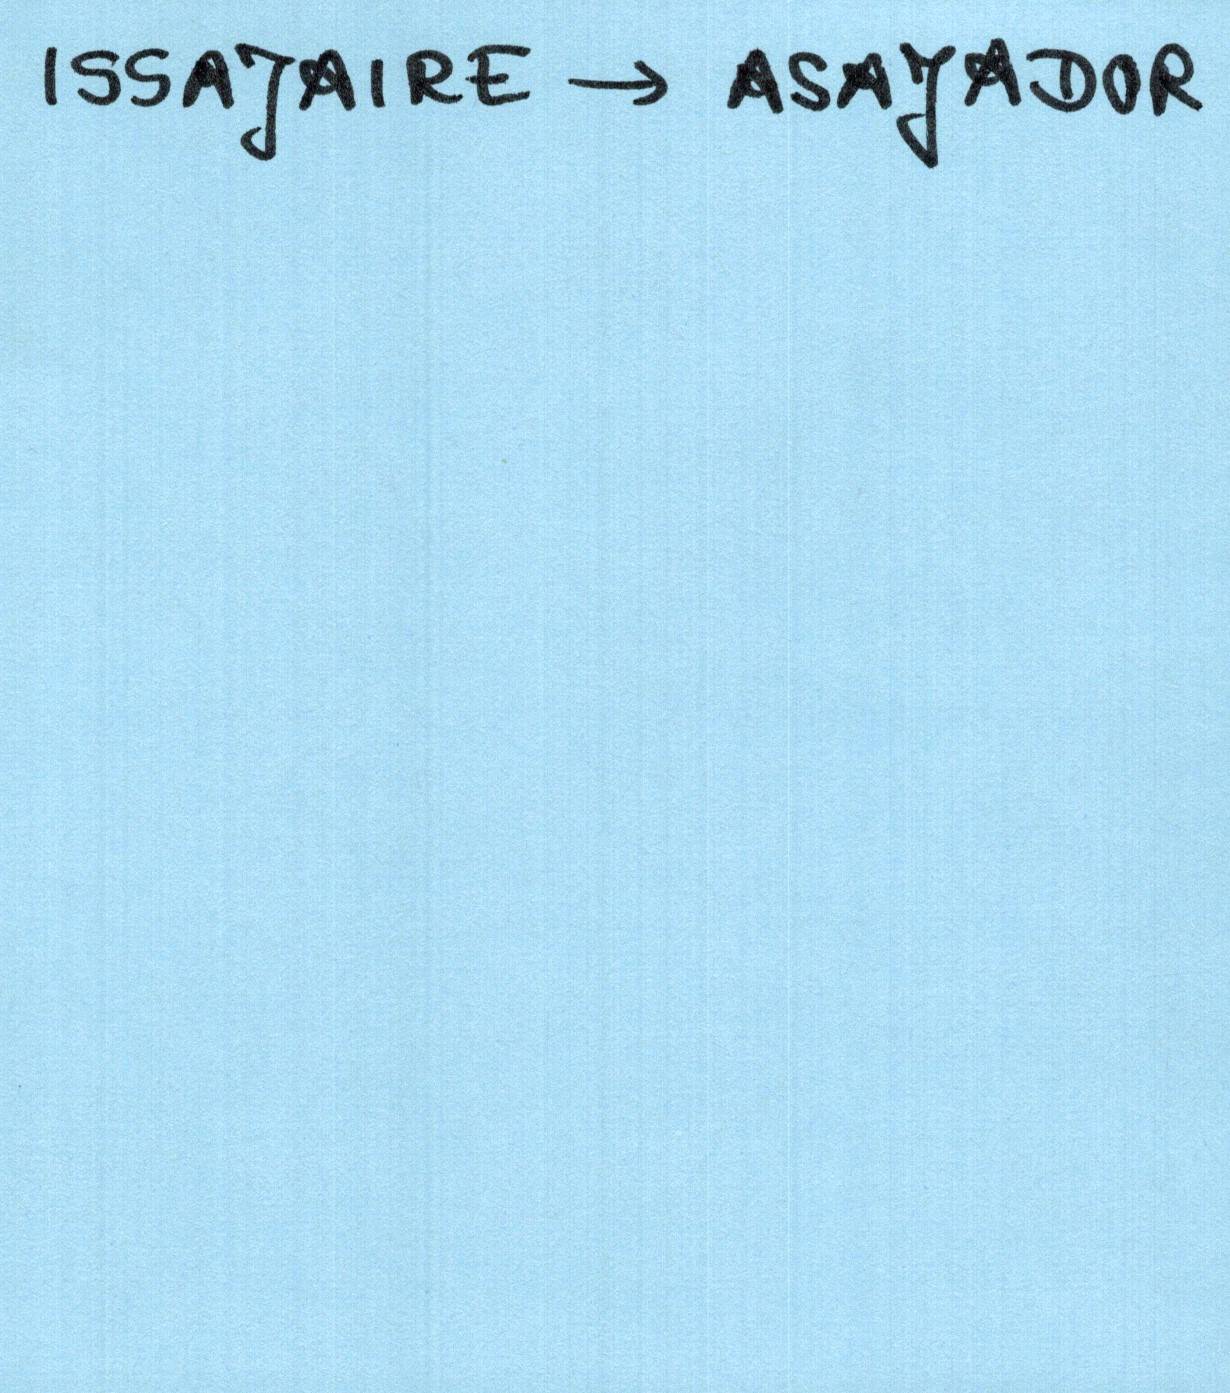 ISSAJAIRE → ASAYADOR